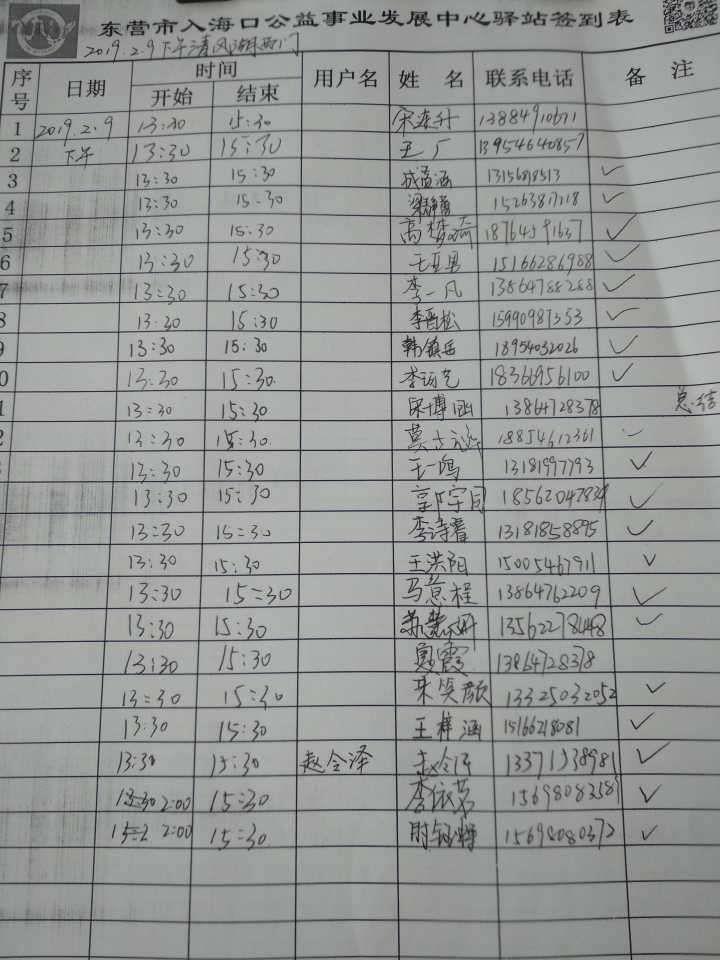 东营市入海口公益事业发展中心驿站签到表
2019.2.9下午清风湖西门
序号 日期 时间 用户名 姓名 联系电话 备注
开始 结束
1 2019.2.9 13:30 15:30 宋连升 13884910671
2 下午 13:30 15:30 王广 13954640857
3 13:30 15:30 13156818513 ✓
4 13:30 15:30 ✓
5 13:30 15:30 高梦 ✓
6 13:30 15:30 15166286988 ✓
7 13:30 15:30 李一凡 13864788288 ✓
8 13:30 15:30 李晋松 15990987553 ✓
9 13:30 15:30 韩镇岳 18954032026 ✓
0 13:30 15:30 18366956100 ✓
1 13:30 15:30 梁博涵 13864728378 总结
2 13:30 15:30 18854612361 ✓
13:30 15:30 王一鸣 13181997793 ✓
13:30 15:30 ✓
13:30 15:30 李诗睿 13181858895 ✓
13:30 15:30 王洪阳 15005467911 ✓
13:30 15:30 马意程 13864762209 ✓
13:30 15:30 13562278048 ✓
13:30 15:30 13864728378
13:30 15:30 宋笑颜 13325032052 ✓
13:30 15:30 王梓涵 15166218081 ✓
13:30 15:30 赵令泽 赵令泽 13371338981 ✓
2:00 15:30 李依诺 ✓
2:00 15:30 15698080372 ✓